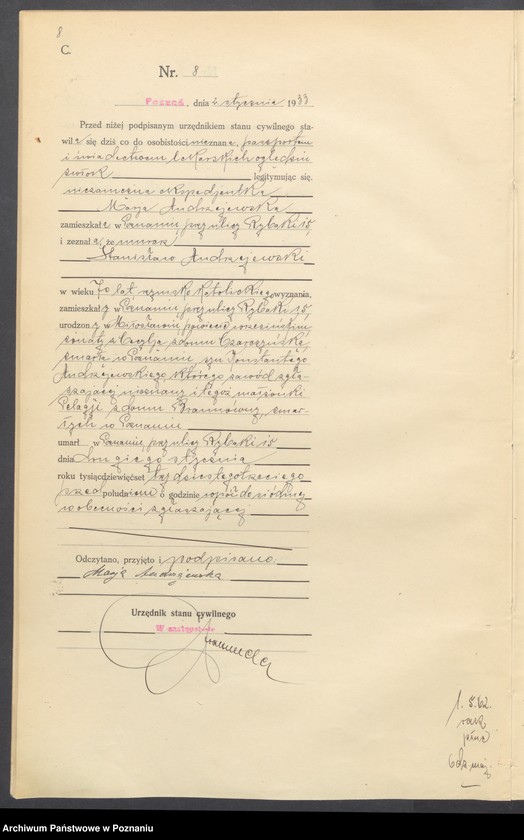 8
C.
Nr. 8
Poznań, dnia 2 stycznia 1933
Przed niżej podpisanym urzędnikiem stanu cywilnego sta-
wiła się dziś co do osobistości nieznana, paszportem
i świadectwem lekarskich oględzin
zwłok legitymując się,
niezamężna ekspedjentka
Marja Andrzejewska
zamieszkała w Poznaniu przy ulicy Rybaki 15
i zeznała, że murarz
Stanisław Andrzejewski
w wieku 70 lat rzymsko katolickiego wyznania,
zamieszkały w Poznaniu, przy ulicy Rybaki 15,
urodzony w Miłosławiu, powiecie wrzesińskim,
żonaty z z domu
zmarłą w Poznaniu, syn Konstantego
Andrzejewskiego którego zawód zgła-
szającej nieznany i tegoż małżonki
Pelagji z domu zmar-
łych w Poznaniu
umarł w Poznaniu, przy ulicy Rybaki 15
dnia drugiego stycznia
roku tysiącdziewięćset trzydziestego trzeciego
przed południem o godzinie wpół do siódmej
w obecności zgłaszającej
Odczytano, przyjęto i podpisano
Marja Andrzejewska
Urzędnik stanu cywilnego
W zastępstwie
1. 5. 62
rak
płuc
6 dz. maj.
Archiwum Państwowe w Poznaniu